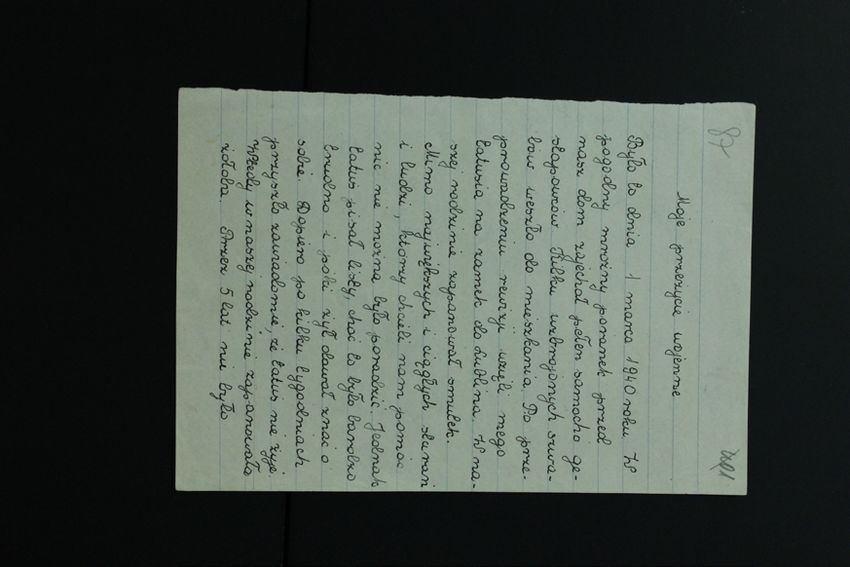 87
Moje przeżycie wojenne
Było to dnia 1 marca 1940 roku W
pogodny mroźny poranek przed
nasz dom zajechał pełen samochó ge-
stapowców Kilku uzbrojonych szwa-
bów weszło do mieszkania Po prze-
prowadzeniu rewizji wzięli mego
tatusia na zamek do Lublina. W na-
szej rodzinie zapanował smutek.
Mimo największych i ciągłych starań
i ludzi, którzy chcieli nam pomóc
nic nie można było poradzić. Jednak
tatuś pisał listy, choć to było bardzo
trudno i póki żył dawał znać o
sobie. Dopiero po kilku tygodniach
przyszło zawiadomie, że tatuś nie żyje.
Wtedy w naszej rodzinie zapanowała
żałoba. Przez 5 lat nie było